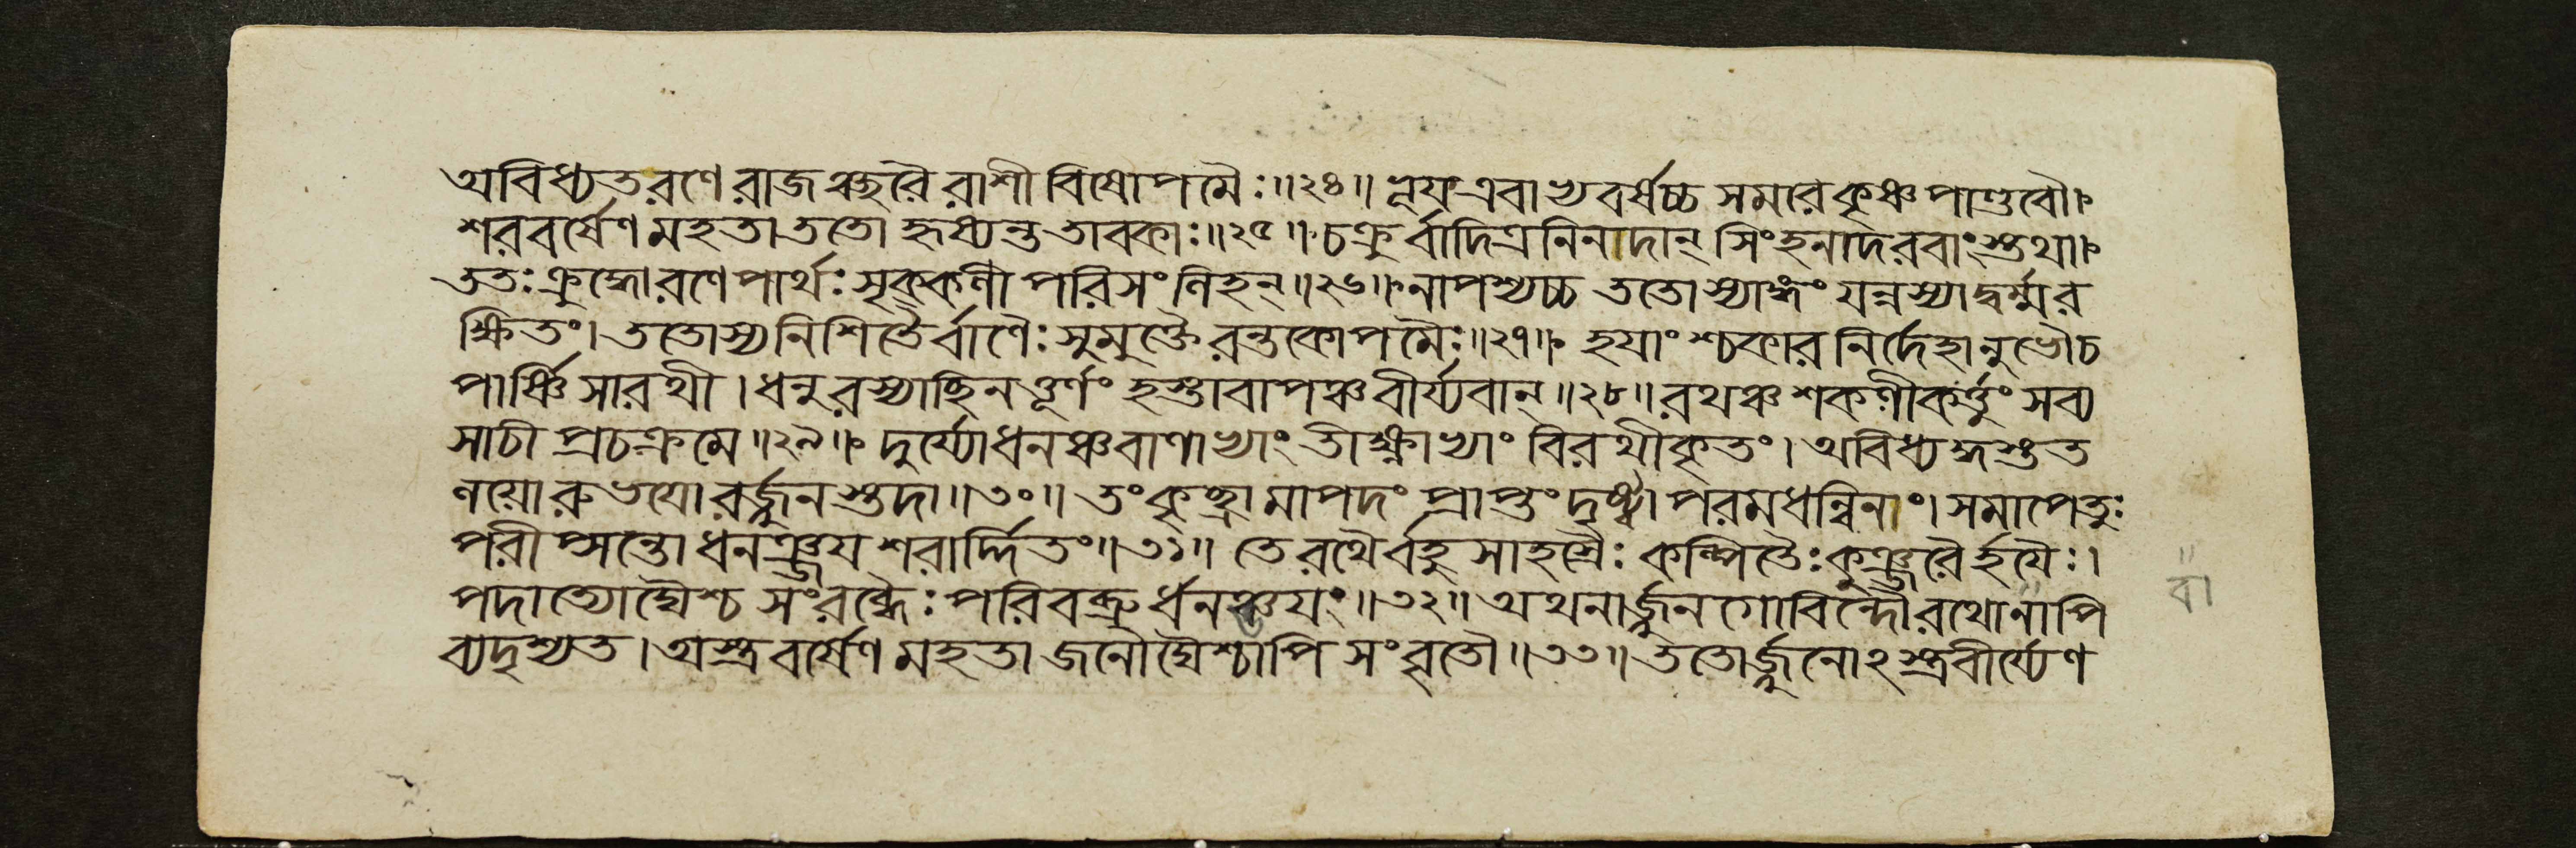 অবিধ্যত রণে রাজঞ্ছরৈরাশীবিষোপমৈঃ॥২৪॥ ভূয় এবাভ্যবর্ষচ্চ সমরে কৃষ্ণপাণ্ডবৌ।
শরবর্ষেণ মহতা ততো হৃষ্যন্ত তাবকাঃ॥২৫॥ চক্রুর্বাদিত্রনিনাদান্ সিংহনাদরবাংস্তথা।
ততঃ ক্রুদ্ধো রণে পার্থঃ সৃক্কণী পরিসংলিহন্॥২৬॥ নাপশ্যচ্চ ততোস্যাঙ্গং যন্নস্যাদ্বর্ম্মর
ক্ষিতং। ততোস্য নিশিতৈর্বাণৈঃ সুমুক্তৈরন্তকোপমৈঃ॥২৭॥ হয়াংশ্চকার নির্দেহানুভৌ চ
পার্ষ্ণিসারথী। ধনুরস্যাচ্ছিনত্তূর্ণং হস্তাবাপঞ্চ বীর্য্যবান্॥২৮॥ রথঞ্চ শকলীকর্ত্তুং সব্য
সাচী প্রচক্রমে॥২৯॥ দুর্য্যোধনঞ্চ বাণাভ্যাং তীক্ষ্ণাভ্যাং বিরথীকৃতং। অবিধ্যদ্ধস্তত
লয়োরুভয়োরর্জ্জুনস্তদা॥৩০॥ তং কৃচ্ছ্রামাপদং প্রাপ্তং দৃষ্ট্বা পরমধন্বিনাং। সমাপেতুঃ
পরীপ্সন্তো ধনঞ্জয়শরার্দ্দিতং॥৩১॥ তে রথৈর্বহুসাহস্রৈঃ কল্পিতৈঃ কুঞ্জরৈর্হয়ৈঃ।
পদাত্যোঘৈশ্চ সংরব্ধৈঃ পরিবব্রুর্ধনঞ্জয়ং॥৩২॥ অথ নার্জ্জুনগোবিন্দৌ রথো নাপি
ব্যদৃশ্যত। অস্ত্রবর্ষেণ মহতা জনৌঘৈশ্চাপি সংবৃতৌ॥৩৩॥ ততোর্জ্জুনোঽস্ত্রবীর্য্যেণ
বা